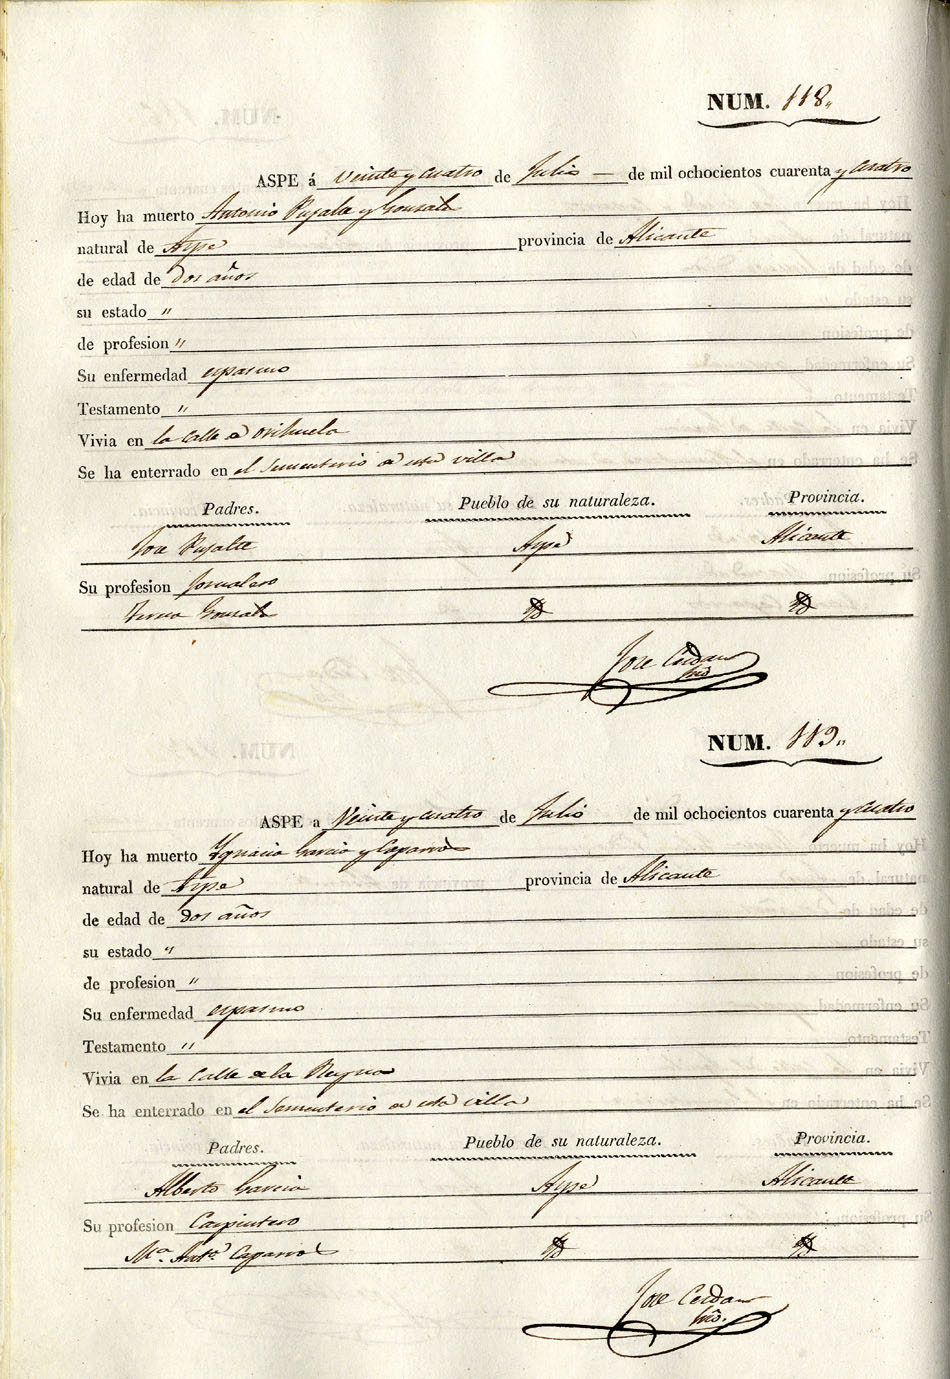 NUM. 118„
ASPE á Veinte y cuatro de Julio — de mil ochocientos cuarenta y cuatro
Hoy ha muerto Antonio Pujalte y Gonzale
natural de Aspe provincia de Alicante
de edad de dos años
su estado "
de profesion "
Su enfermedad espasmo
Testamento "
Vivia en la calle de Orihuela
Se ha enterrado en el Sementerio de esta villa
Padres. Pueblo de su naturaleza. Provincia.
Jose Pujalte Aspe Alicante
Su profesion Jornalero
Teresa Gonzale
Jose Cerdan
NUM. 119„
ASPE a Veinte y cuatro de Julio de mil ochocientos cuarenta y cuatro
Hoy ha muerto Ygnacio Garcia y Caparros
natural de Aspe provincia de Alicante
de edad de dos años
su estado "
de profesion "
Su enfermedad espasmo
Testamento "
Vivia en la Calle de la Reyna
Se ha enterrado en el Sementerio de esta villa
Padres. Pueblo de su naturaleza. Provincia.
Alberto Garcia Aspe Alicante
Su profesion Carpintero
Mª. Antª. Caparros
Jose Cerdan